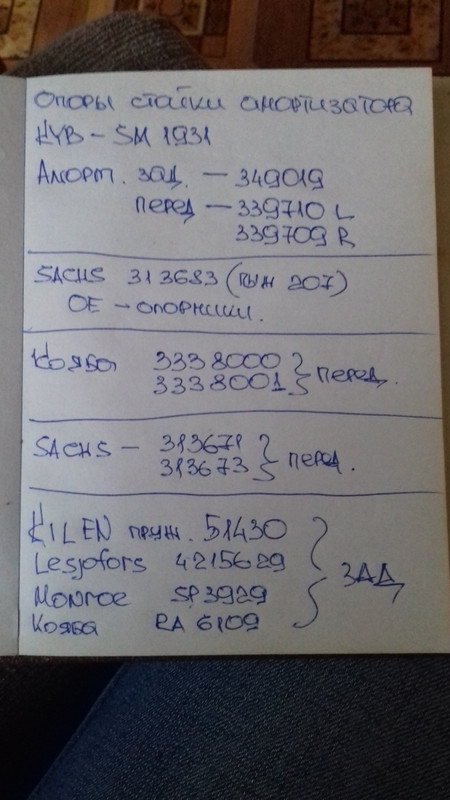 Опоры стойки амортизатора
KYB - SM 1931
Аморт. зад. — 349019
перед — 339710 L
339709 R
SACHS 313683 (ПЫЖ 207)
OE - опорники.
Кояба 3338000
3338001 } перед.
SACHS — 313671
313673 } перед.
KILEN пруж. 51430
Lesjofors 4215629
Monroe SP3929
Кояба RA 6109
} ЗАД